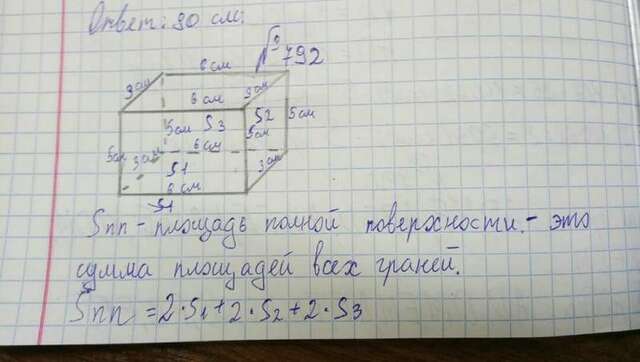 Ответ: 90 см.
№792
6 см
3 см
6 см
3 см
S2
5 см
S3
5 см
5 см
5 см
6 см
3 см
3 см
S1
6 см
S1
Sпп - площадь полной поверхности. - это
сумма площадей всех граней.
Sпп = 2·S1 + 2·S2 + 2·S3